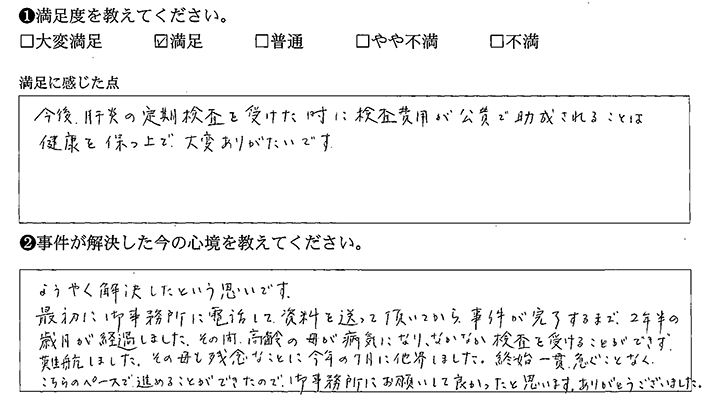 ❶満足度を教えてください。
□大変満足 ☑満足 □普通 □やや不満 □不満
満足に感じた点
今後、肝炎の定期検査を受けた時に検査費用が公費で助成されることは
健康を保つ上で、大変ありがたいです
❷事件が解決した今の心境を教えてください。
ようやく解決したという思いです。
最初に御事務所に電話して、資料を送って頂いてから、事件が完了するまで、2年半の
歳月が経過しました。その間、高齢の母が病気になり、なかなか検査を受けることができず、
難航しました。その母も残念なことに今年の7月に他界しました。終始一貫、急ぐことなく、
こちらのペースで進めることができたので、御事務所にお願いして良かったと思います。ありがとうございました。